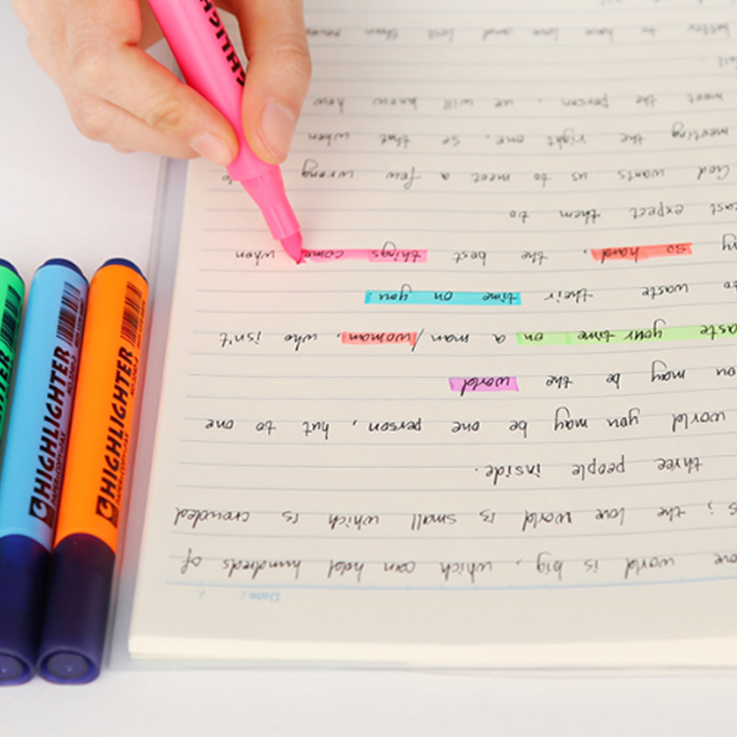 Date / /
world is big, which can hold hundreds of
; the love world is small which is crowded
three people inside.
world you may be one person, but to one
may be the world
your time on a man/woman, who isn't
to waste their time on you.
so hard, the best things come when
expect them to
God wants us to meet a few wrong
meeting the right one, so that when
meet the person, we will know how
better to have love and lost than never
HIGHLIGHTER
HIGHLIGHTER